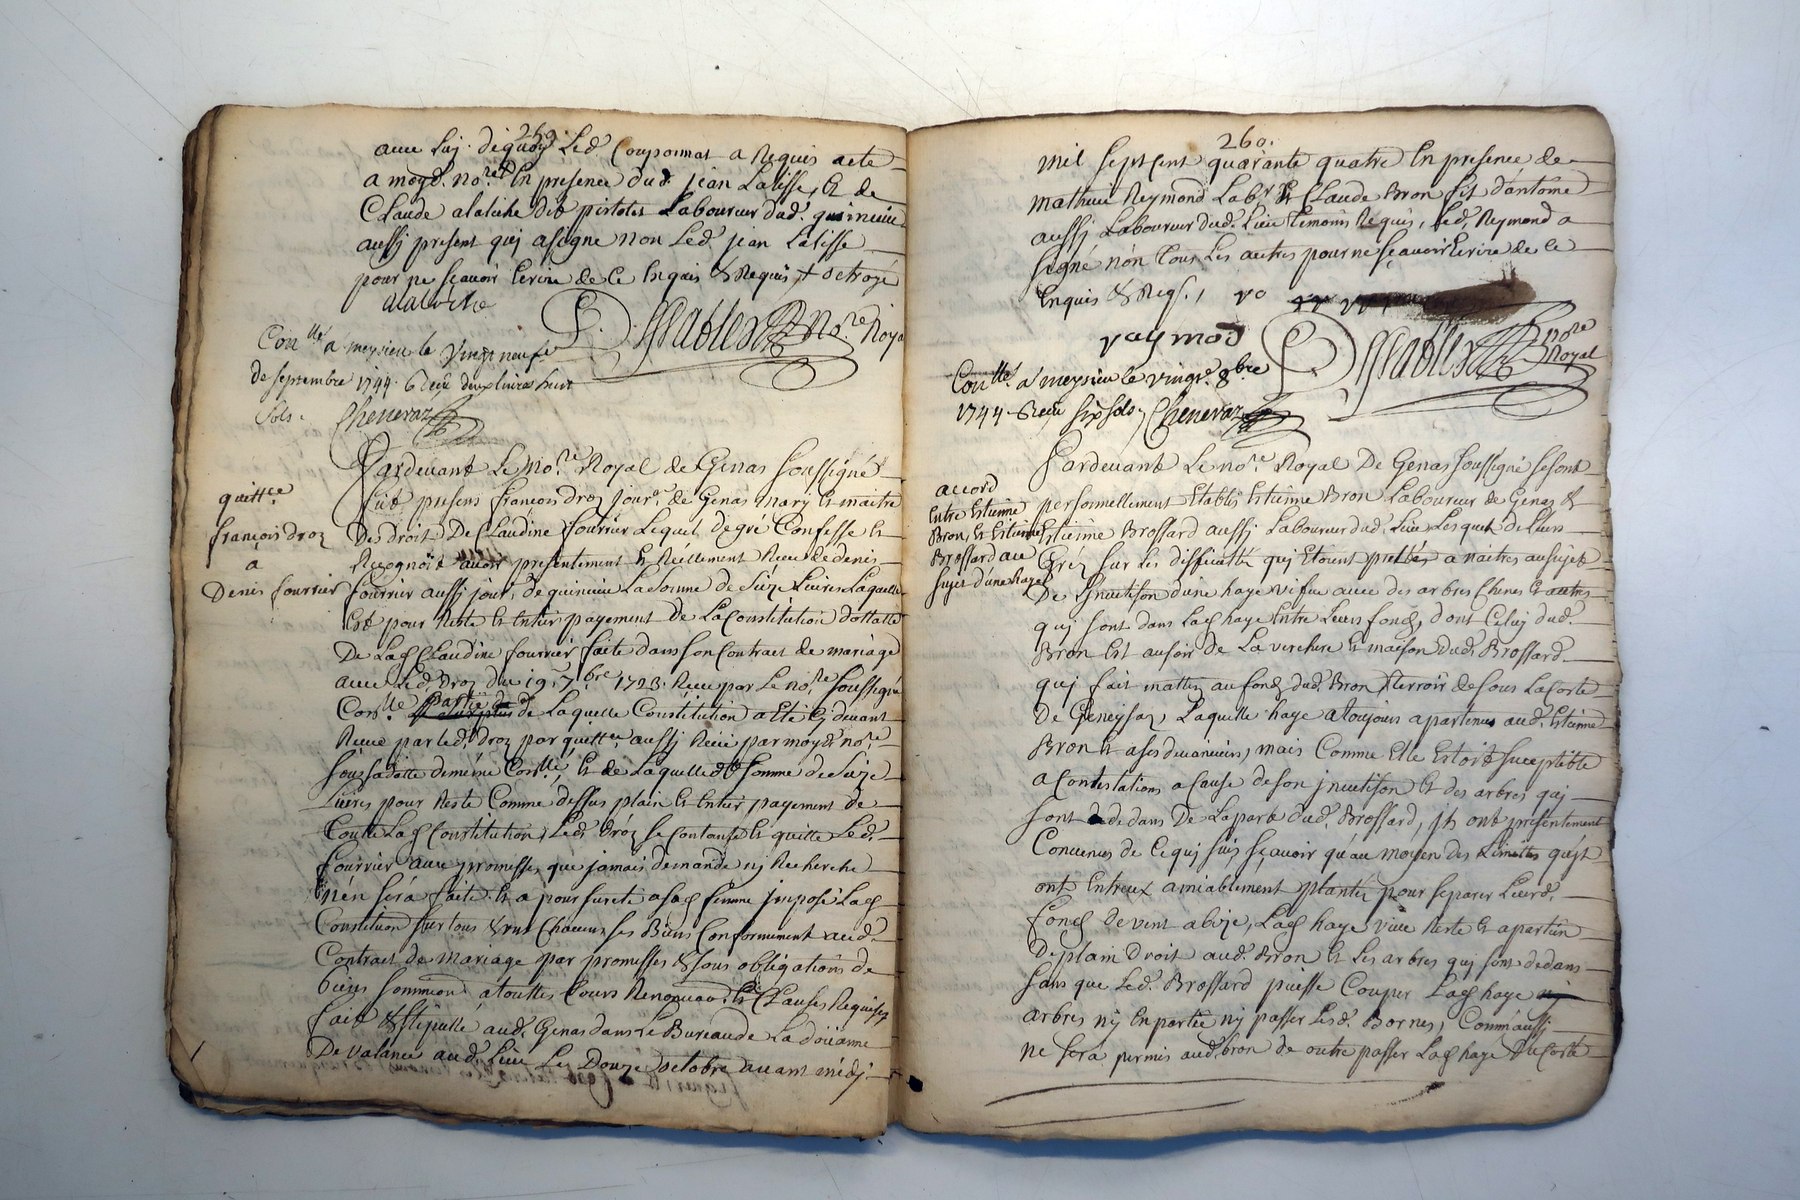 259.
avec luy. dequoy Led. Couponnat a Requis acte
a moyd. no.re En presence dud. jean Lalisse, & de
Claude alatiche dit pistolet Laboureur dud. quinieu
aussy present quy a signe non Led. jean Lalisse
pour ne sçavoir Ecrire de ce Enquis & Requis, + octroyé
alatiche
no.re Royal
Con.lle a meysieu le vingt neufe
de septembre 1744. Reçu deux livres huit
sols. Cheneraz
quitt.ce
francois droz
a
Denis fourrier
Pardevant Le No.re Royal de Genas soussigné
fut present francois droz jour.r de Genas mary & maitre
De droit De Claudine fourrier Lequel de gré Confesse &
Recognoit avoir presentement & Reellement Receu de denis
fourrier aussy jour.r de quinieu La somme de Seize Livres Laquelle
Est pour Reste & Entier payement de La Constitution dottalle
De Lad. Claudine fourrier faite dans son Contract de mariage
avec Led. Droz du 19. 7.bre 1723. Receu par Le no.re soussigné
Con.lle partie de Laquelle Constitution a Eté cy devant
Receue par Led. Droz par quitt.ce aussy Receu par moyd. no.re
sous sa datte demême Con.lle, & de Laquelle de somme de Seize
Livres pour Reste Comme dessus plain & Entier payement de
toute Lad. Constitution, Led. Droz se Contante & quitte Led.
fourrier avec promesses que jamais demande ny Recherche
n'en sera faite & a pour sureté a sad. femme jmposé Lad.
Constitution sur tous & uns Chacuns ses Biens Conformement aud.
Contract de mariage par promesses & sous obligations de
biens soumission a touttes Cours Renonciaôn & Clauses Requises
fait & stipullé aud. Genas dans Le Bureau de La doüanne
De valance aud. Lieu Le Douze octobre avant midy.
260.
mil sept cent quarante quatre En presence de
mathieu Reymond Lab.r & Claude Bron fils d'antoine
aussy Laboureur dud. Lieu temoins Requis, Led. Reymond a
signé non tous Les autres pour ne sçavoir Ecrire de ce
Enquis & Req.s,
raymod
no.re
Royal
Con.lle a meysieu le vingt. 8.bre
1744. Reçu six sols, Cheneraz
accord
Entre Estienne
Bron, & Estienne
Brossard au
sujet d'une haye
Pardevant Le no.re Royal De Genas soussigné se sont
personnellement Etablis Estienne Bron Laboureur de Genas &
Estienne Brossard aussy Laboureur dud. Lieu Lesquels de Leurs
Gréz sur Les difficultés quy Etoient prettes a naitre au sujet
De d'une haye vifve avec des arbres Chenes & autres
quy sont dans Lad. haye Entre Leurs fonds, dont Celuy dud.
Bron Est au soir de La verchere & maison dud. Brossard
quy fait mattin au fond dud. Bron terroir de sous La Coste
De Geneysaz Laquelle haye a toujours apartenue aud. Estienne
Bron & a ses devanciers, mais Comme Elle Estoit suceptible
a Contestations a Cause de son & des arbres quy
sont dedans De La part dud. Brossard, jls ont presentement
Convenus de Ce quy suit sçavoir qu'au moyen des Limittes qu'jls
ont Entreux amiablement plantés pour separer Leursd.
fonds de vent a bize, Lad. haye vive Reste & apartien
De plain Droit aud. Bron & Les arbres quy sont dedans
sans que Led. Brossard puisse Couper Lad. haye ny
arbres ny En partie ny passer Lesd. Bornes, Comm'aussy
ne sera permis aud. bron de outre passer Lad. haye du Costé